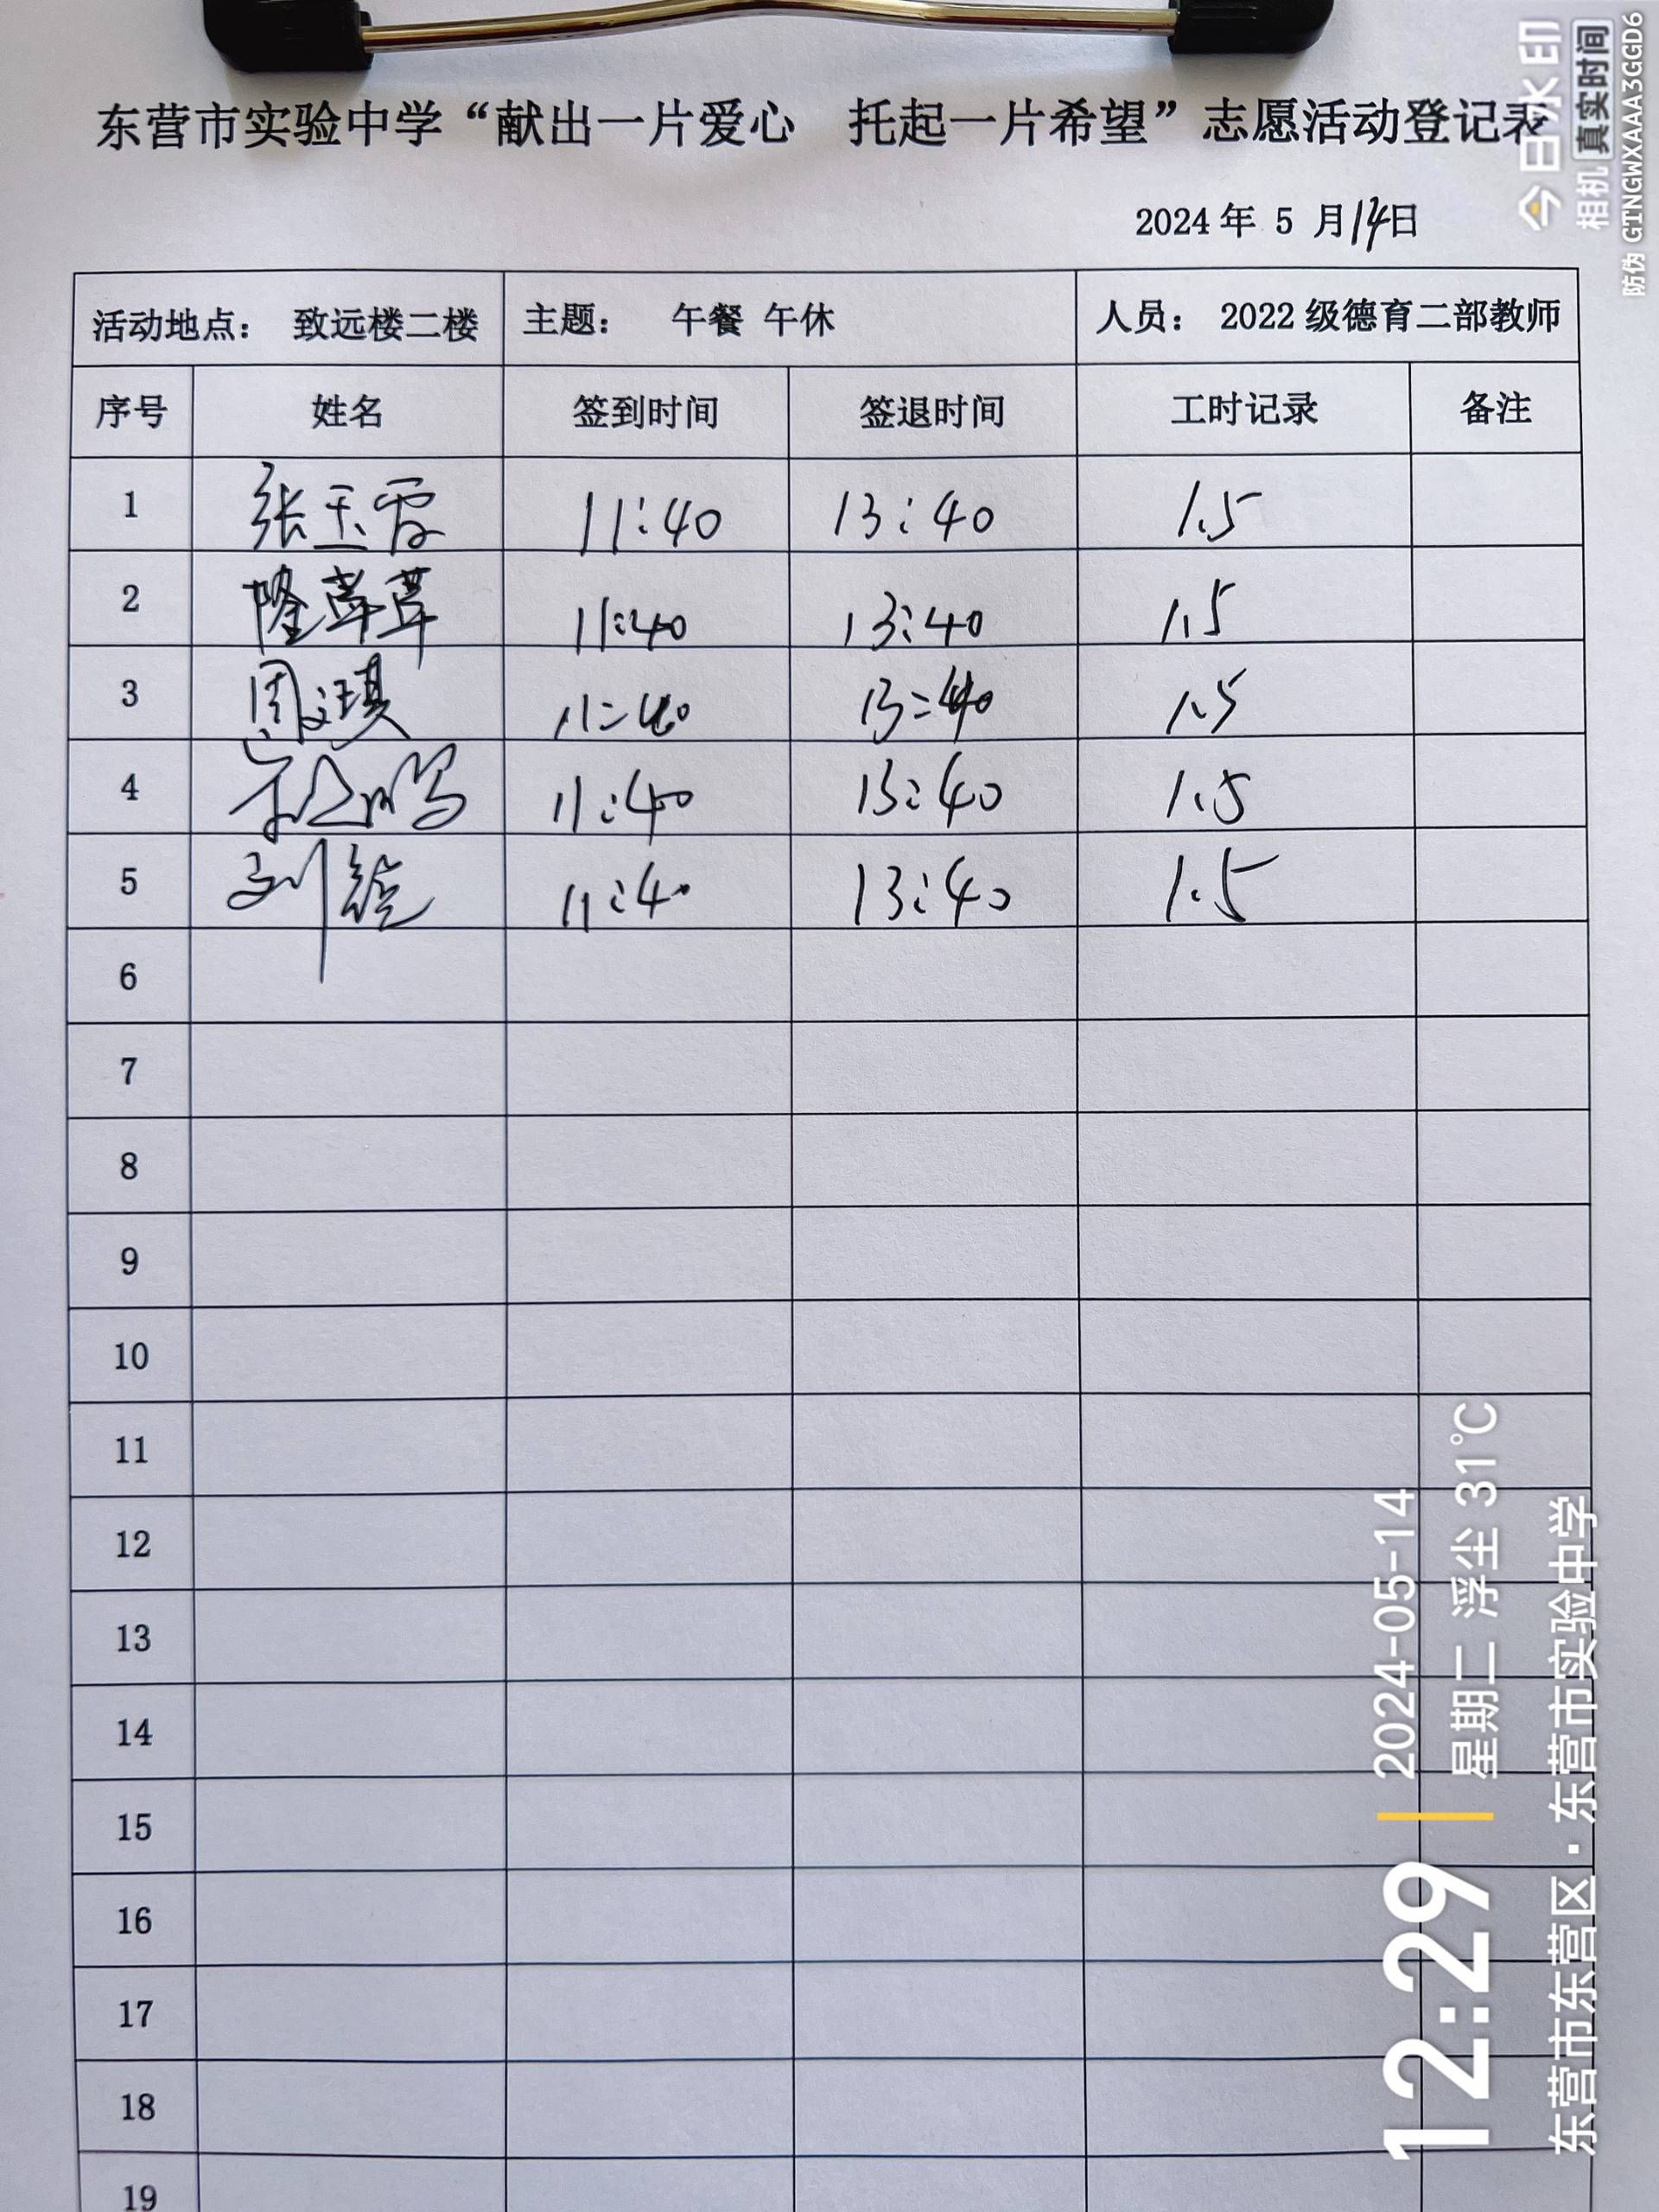 东营市实验中学“献出一片爱心 托起一片希望”志愿活动登记表
2024年 5 月14日
活动地点： 致远楼二楼 主题： 午餐 午休 人员： 2022级德育二部教师
序号 姓名 签到时间 签退时间 工时记录 备注
1 张玉霞 11:40 13:40 1.5
2 隆葺葺 11:40 13:40 1.5
3 周文琪 11:40 13:40 1.5
4 11:40 13:40 1.5
5 刘 11:40 13:40 1.5
6
7
8
9
10
11
12
13
14
15
16
17
18
19
今日水印
相机 真实时间
防伪 GTNGWXAAAA3GGD6
12:29
2024-05-14
星期二 浮尘 31℃
东营市东营区·东营市实验中学